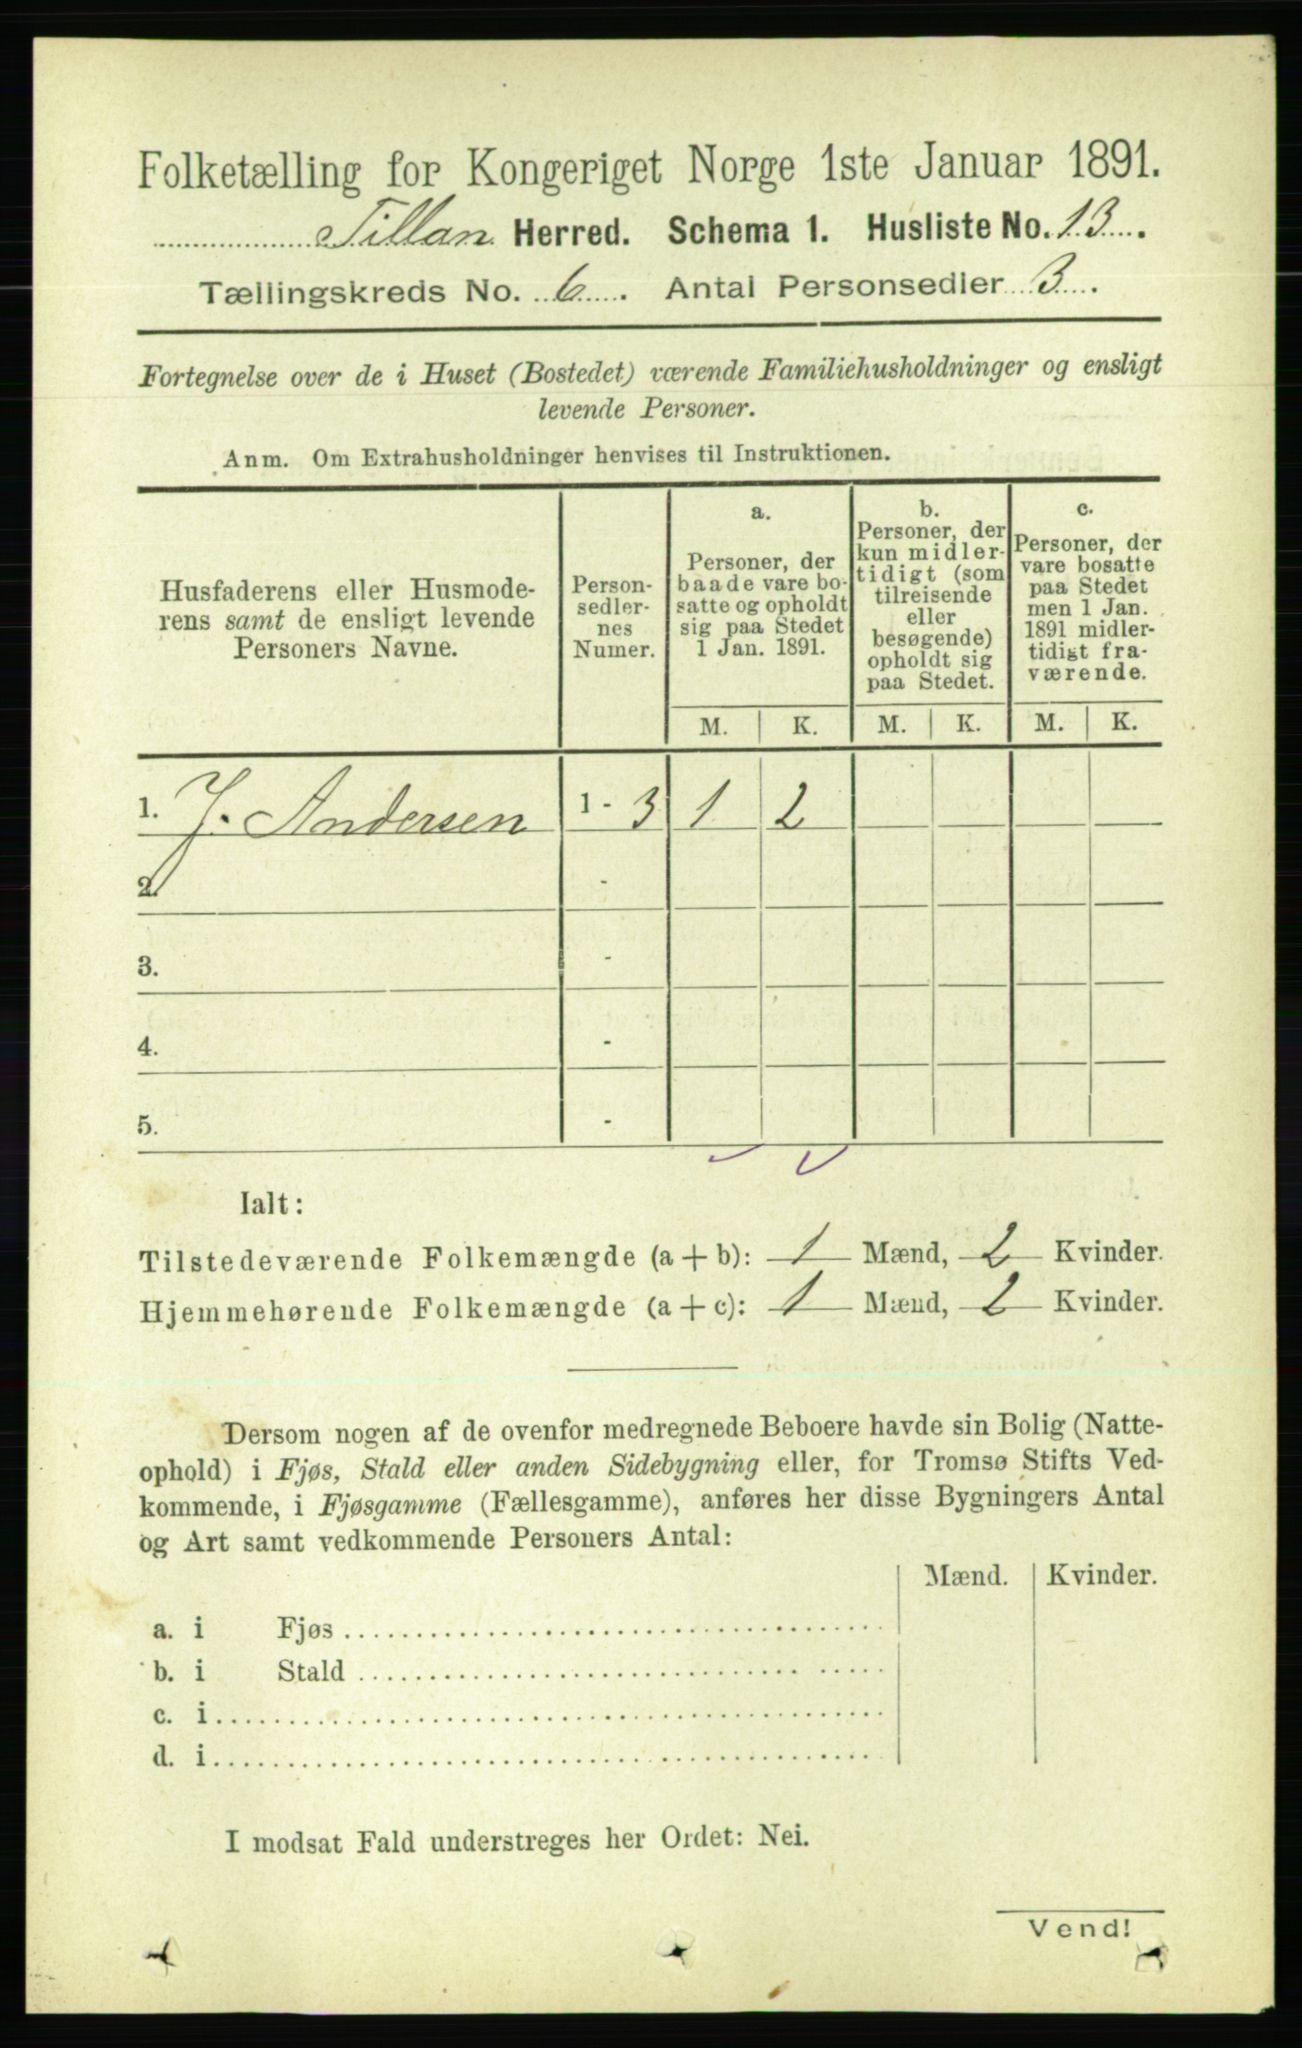 Folketælling for Kongeriget Norge 1ste Januar 1891.
Fillan Herred. Schema 1. Husliste No. 13.
Tællingskreds No. 6. Antal Personsedler 3.
Fortegnelse over de i Huset (Bostedet) værende Familiehusholdninger og ensligt
levende Personer.
Anm. Om Extrahusholdninger henvises til Instruktionen.
Husfaderens eller Husmode-
rens samt de ensligt levende
Personers Navne.
Person-
sedler-
nes
Numer.
a.
Personer, der
baade vare bo-
satte og opholdt
sig paa Stedet
1 Jan. 1891.
b.
Personer, der
kun midler-
tidigt (som
tilreisende
eller
besøgende)
opholdt sig
paa Stedet.
c.
Personer, der
vare bosatte
paa Stedet
men 1 Jan.
1891 midler-
tidigt fra-
værende.
M. K. M. K. M. K.
1. J. Andersen 1 - 3 1 2
2. -
3. -
4. -
5. -
Ialt:
Tilstedeværende Folkemængde (a + b): 1 Mænd, 2 Kvinder.
Hjemmehørende Folkemængde (a + c): 1 Mænd, 2 Kvinder.
Dersom nogen af de ovenfor medregnede Beboere havde sin Bolig (Natte-
ophold) i Fjøs, Stald eller anden Sidebygning eller, for Tromsø Stifts Ved-
kommende, i Fjøsgamme (Fællesgamme), anføres her disse Bygningers Antal
og Art samt vedkommende Personers Antal:
Mænd. Kvinder.
a. i Fjøs
b. i Stald
c. i
d. i
I modsat Fald understreges her Ordet: Nei.
Vend!